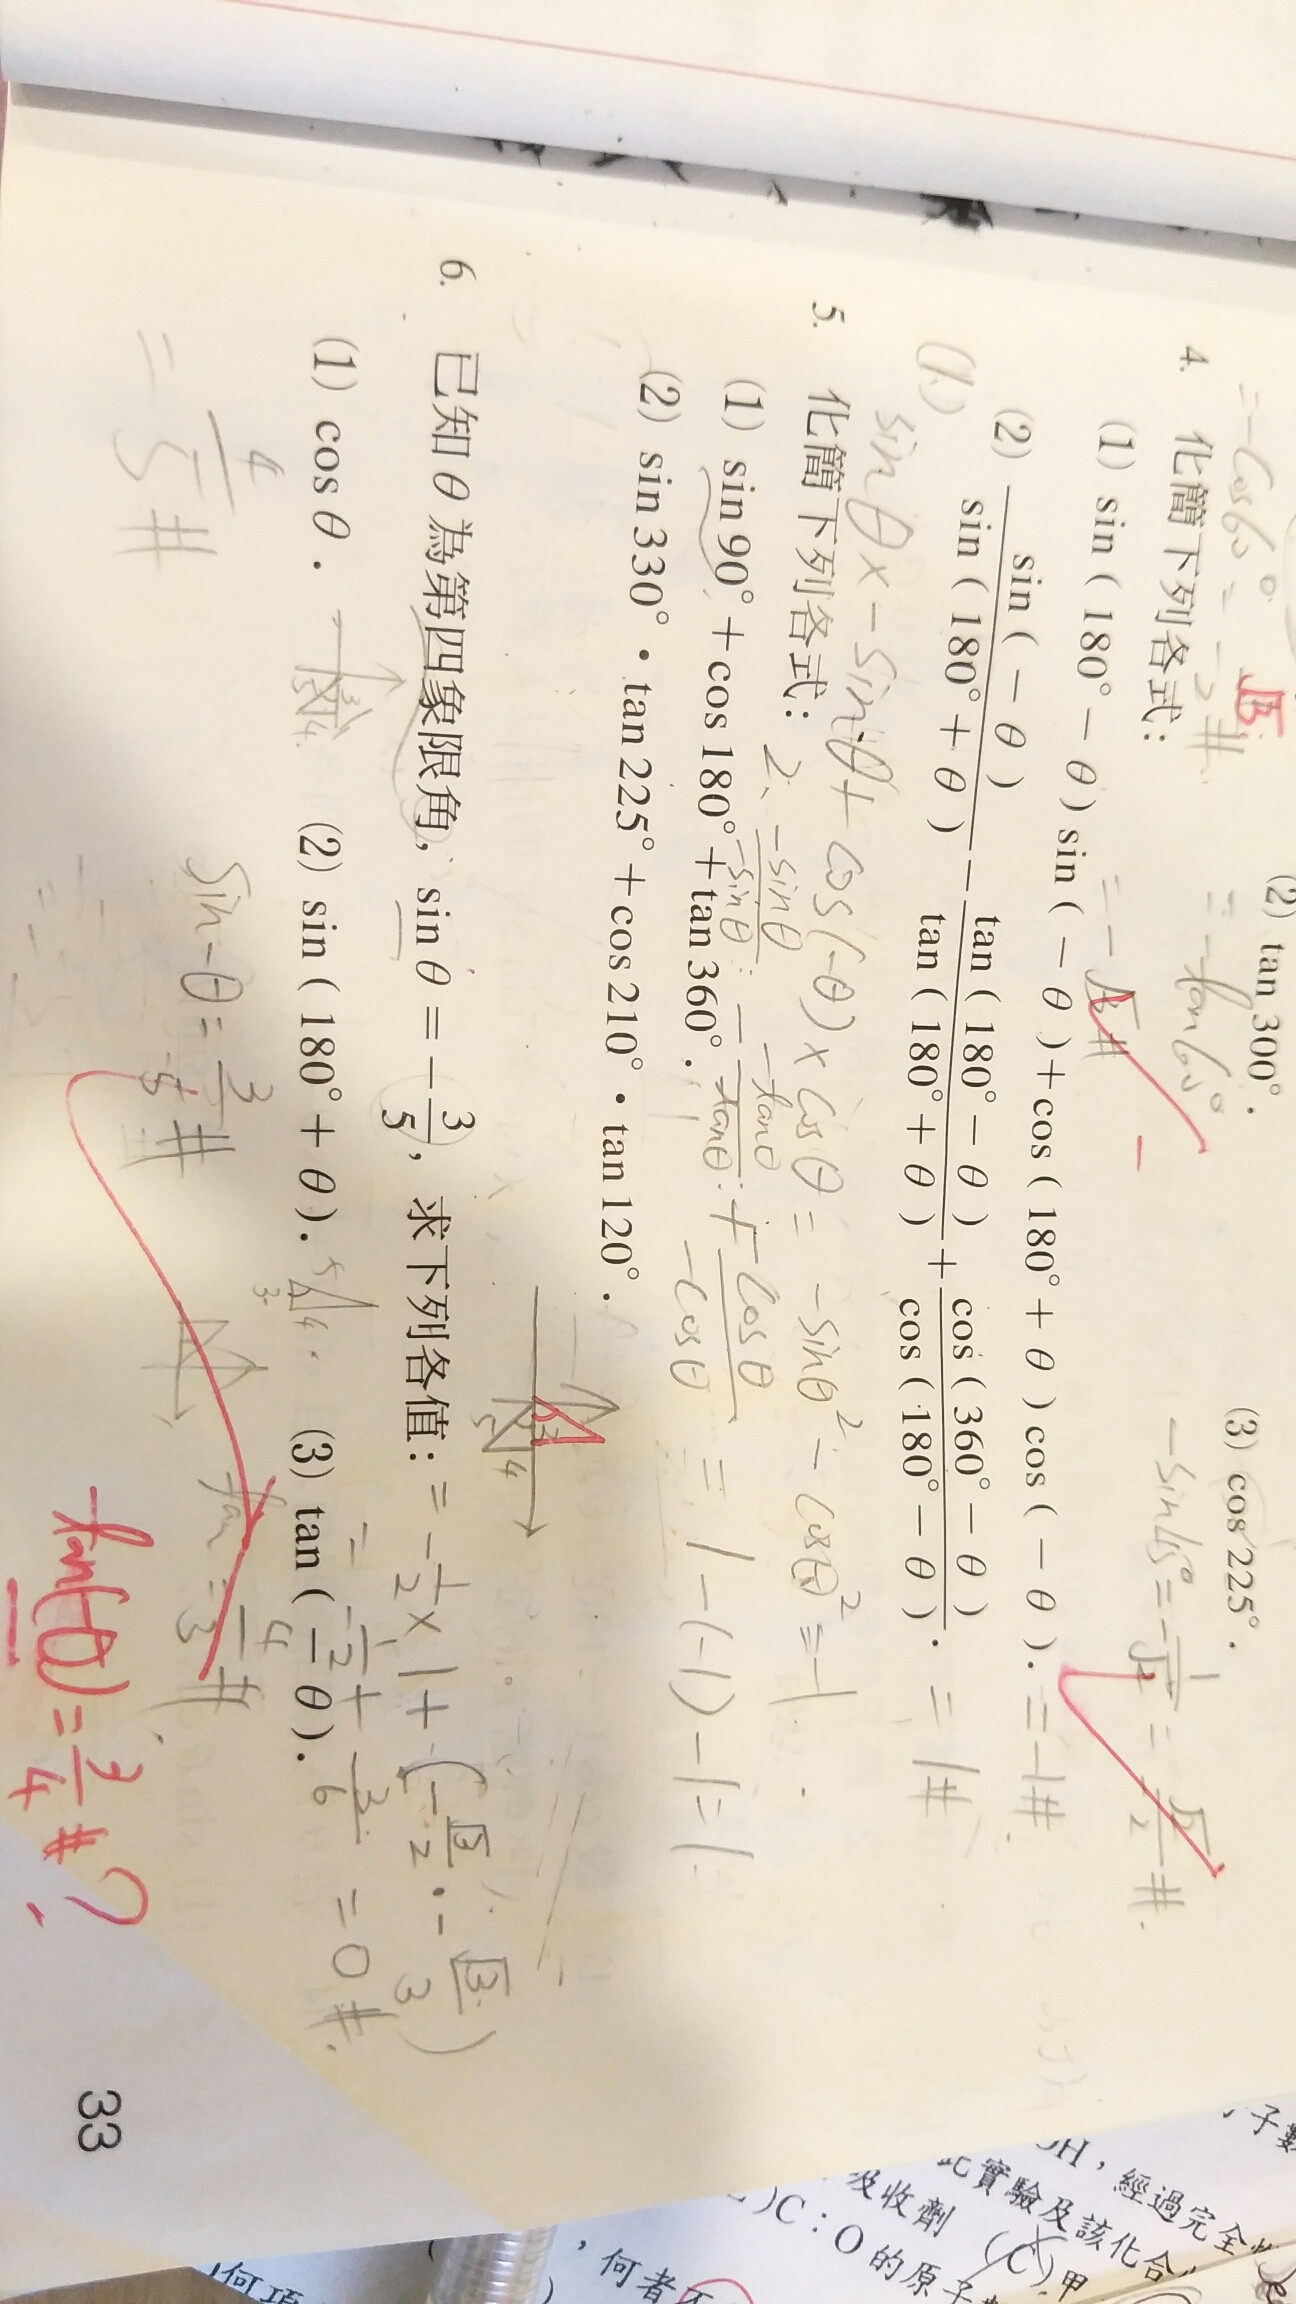 (2) tan 300°.
(3) cos 225°.
= -cos60° = -
= -tan60°
-sin45° = -
4. 化簡下列各式:
= -√3 #
(1) sin ( 180° − θ ) sin ( − θ ) + cos ( 180° + θ ) cos ( − θ ) . = -1 #
(2) sin ( − θ ) / sin ( 180° + θ ) − tan ( 180° − θ ) / tan ( 180° + θ ) + cos ( 360° − θ ) / cos ( 180° − θ ) . = 1 #
(1.) sinθ x -sinθ + cos(-θ) x cosθ = -sinθ² - cosθ² = -1.
5. 化簡下列各式:
2. -sinθ / -sinθ - -tanθ / tanθ + cosθ / -cosθ = 1-(-1)-1 = 1
(1) sin 90° + cos 180° + tan 360° .
(2) sin 330° • tan 225° + cos 210° • tan 120° .
6. 已知 θ 為第四象限角, sin θ = − 3/5 , 求下列各值:
= -1/2 x 1 + (-√3/2 · -√3/3)
(1) cos θ .
(2) sin ( 180° + θ ) .
(3) tan ( − θ ) .
= -1/2 + 3/6 = 0 #
= 4/5 #
sin-θ = 3/5 #
tan(-θ) = 3/4 # ?
33
子數
OH，經過完全
此實驗及該化合
及收劑 (C) 甲
)C : O 的原子
，何者不
何項